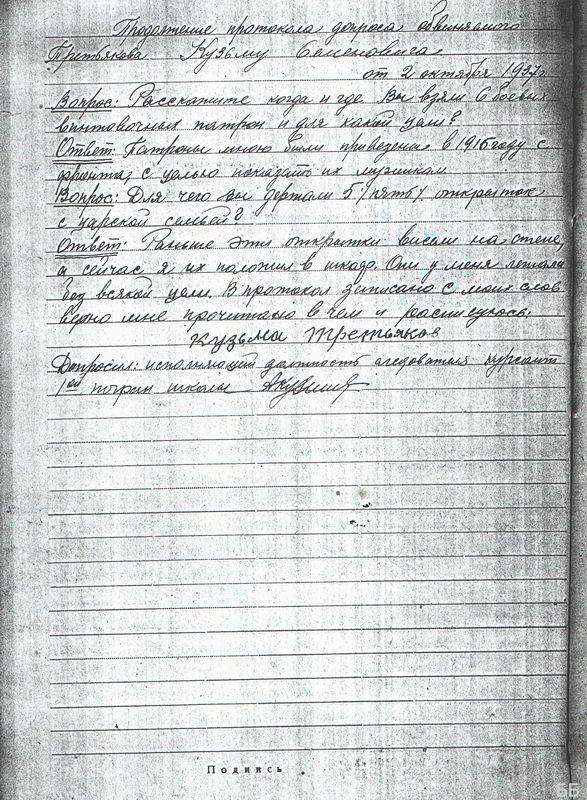 Продолжение протокола допроса обвиняемого
Третьякова Кузьму Семеновича
от 2 октября 1937г.
Вопрос: Расскажите когда и где Вы взяли 6 боевых
винтовочных патрон и для какой цели?
Ответ: Патроны мною были привезены в 1915 году с
фронта, с целью показать их мужикам
Вопрос: Для чего вы держали 5/пять/ открыток
с царской семьей?
Ответ: Раньше эти открытки висели на стене,
а сейчас я их положил в шкаф. Они у меня лежали
без всякой цели. В протокол записано с моих слов
верно мне прочитано в чем и расписуюсь.
Кузьма Третьяков
Допросил: исполняющий должность следователя курсант
1ой погран школы
Подпись
ББ